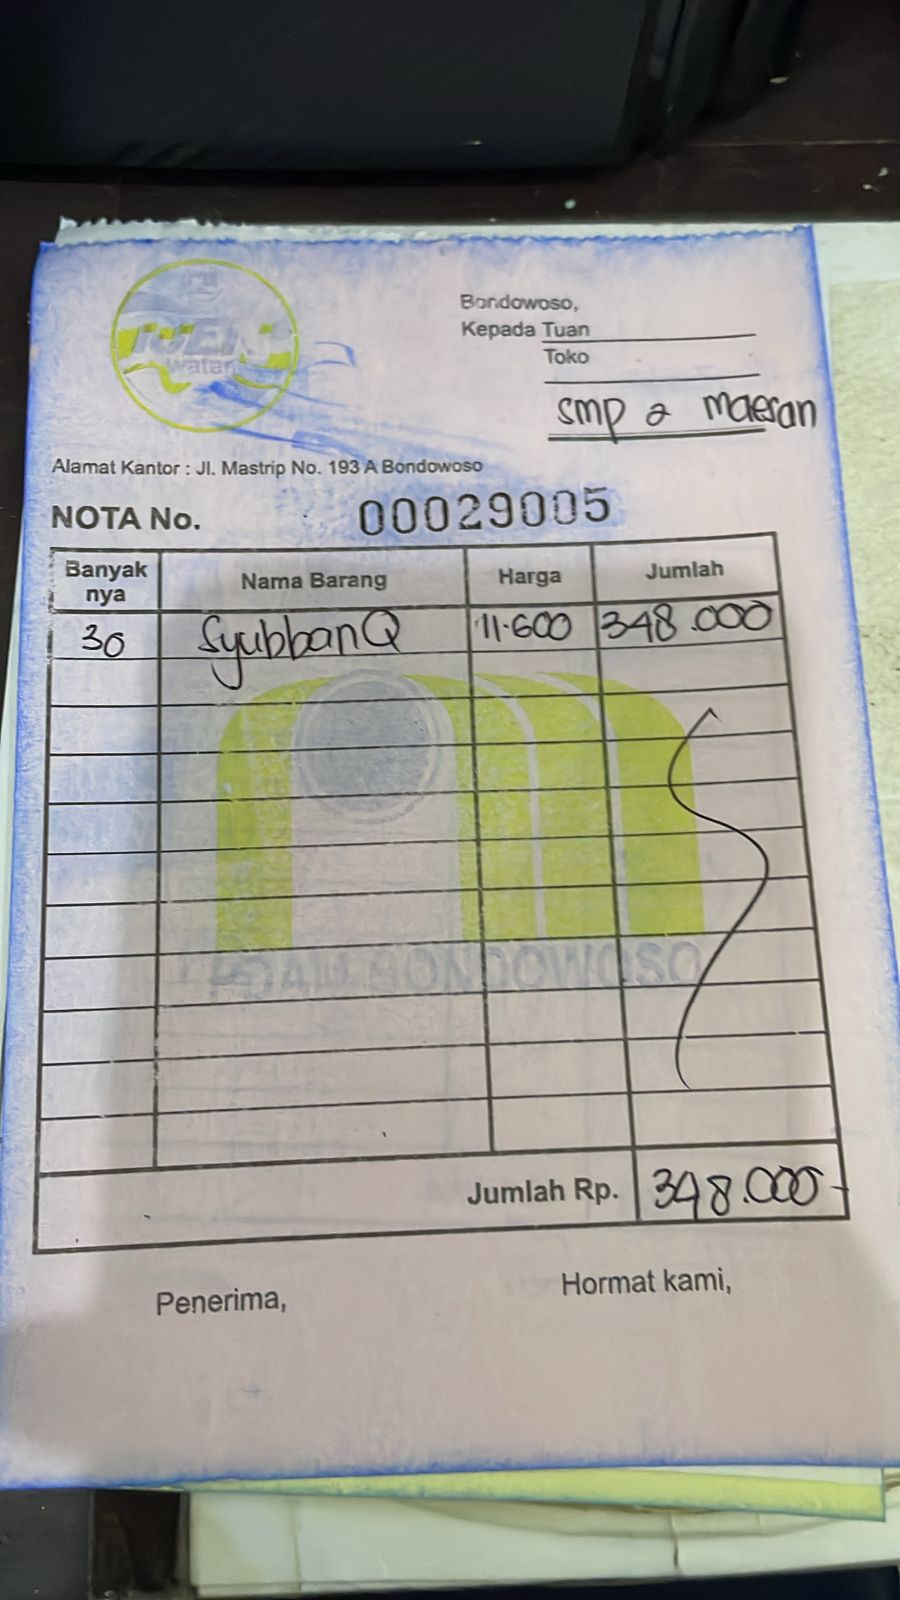 water
Bondowoso,
Kepada Tuan
Toko
SMP 2 Maesan
Alamat Kantor : Jl. Mastrip No. 193 A Bondowoso
NOTA No. 00029005
Banyak nya Nama Barang Harga Jumlah
30 SyubbanQ 11.600 348.000
PDAM BONDOWOSO
Jumlah Rp. 348.000-
Penerima, Hormat kami,